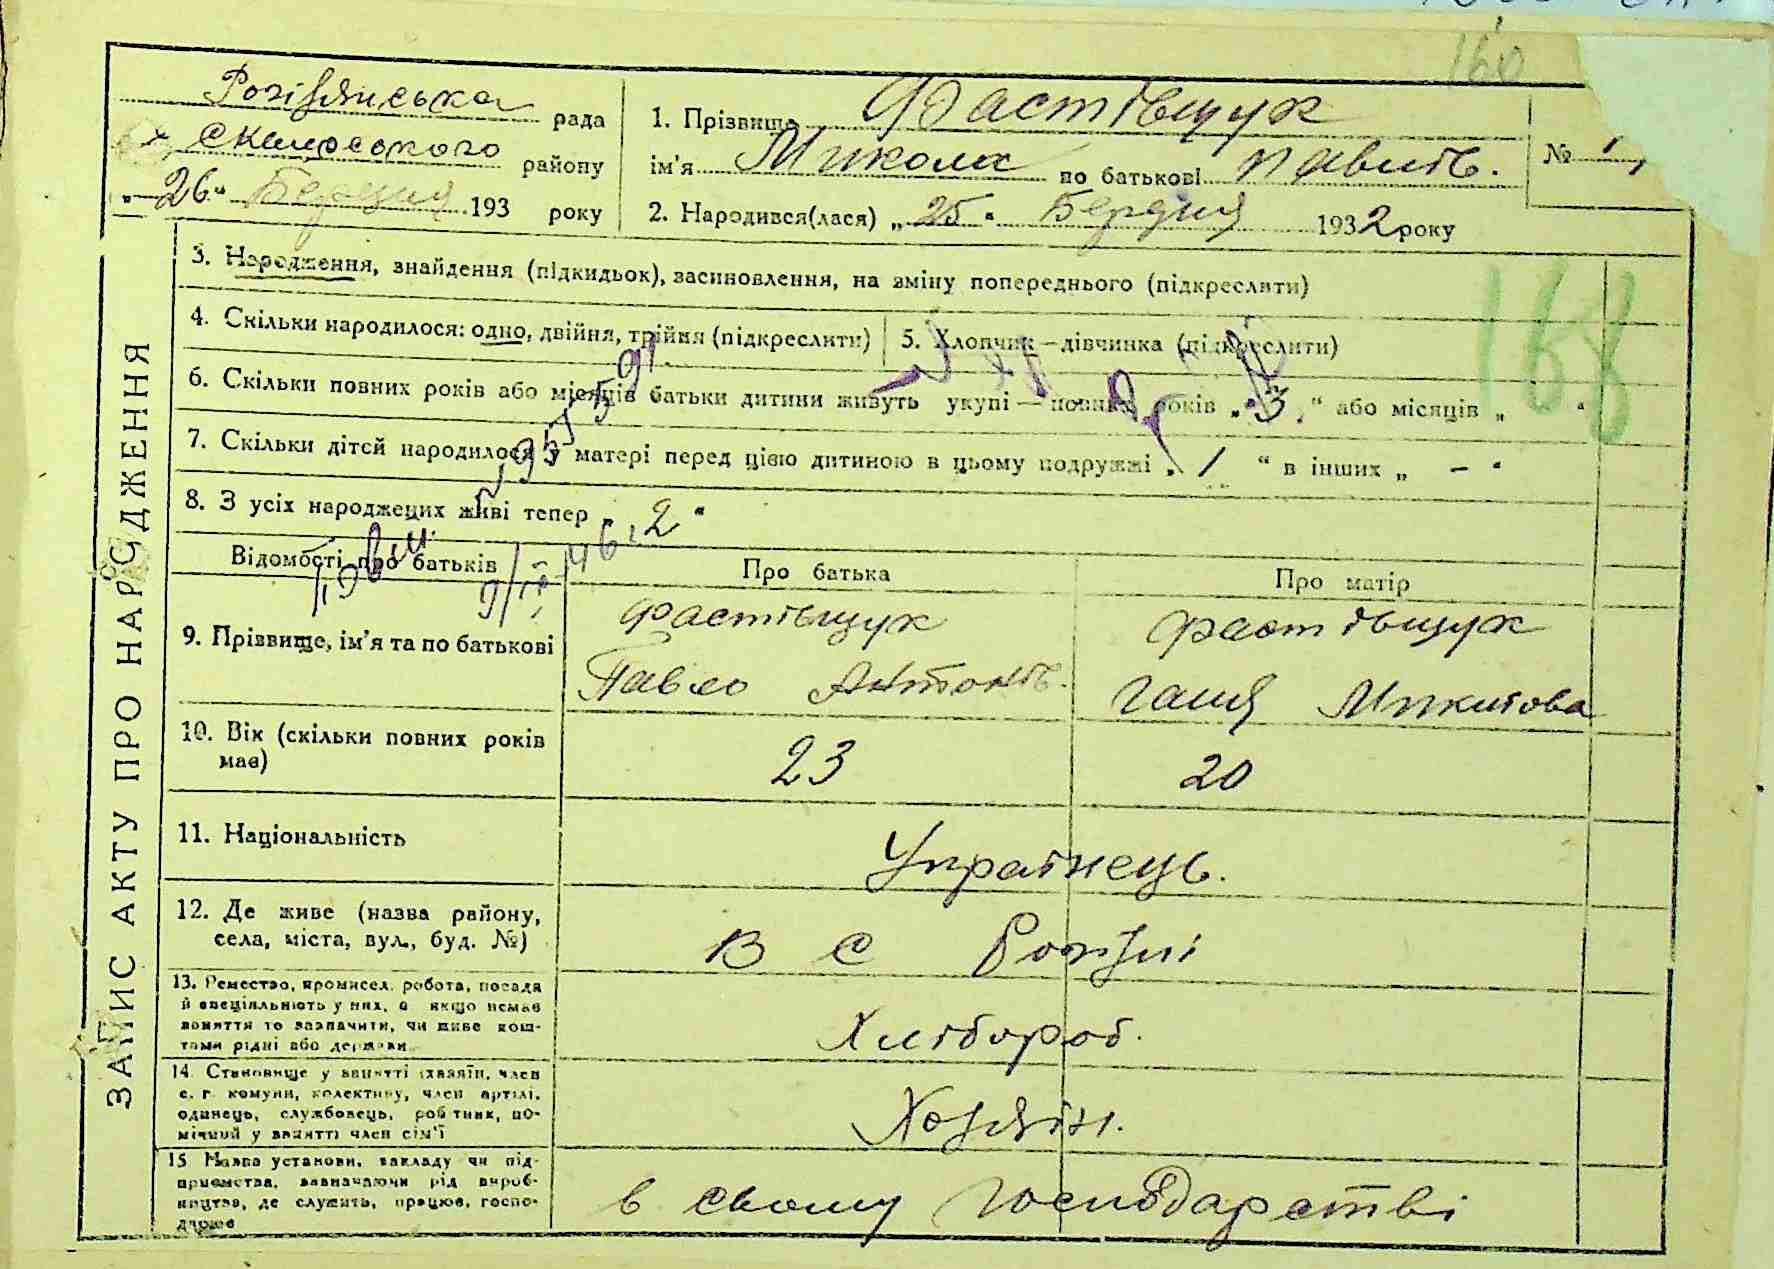 160
Рогізянська рада
Сквирського району
„ 26 “ Березня 193 року
1. Прізвище Фастівщук
ім'я Микола по батькові павить.
2. Народився(лася) „ 25 “ Березня 1932 року
№ 1
168
ЗАПИС АКТУ ПРО НАРОДЖЕННЯ
3. Народження, знайдення (підкидьок), засиновлення, на зміну попереднього (підкреслити)
4. Скільки народилося: одно, двійня, трійня (підкреслити)
5. Хлопчик—дівчинка (підкреслити)
6. Скільки повних років або місяців батьки дитини живуть укупі — повних років „ 3 “ або місяців „ “
7. Скільки дітей народилося у матері перед цією дитиною в цьому подружжі „ 1 “ в інших „ — “
8. З усіх народжених живі тепер „ 2 “
Відомості про батьків
Про батька
Про матір
9. Прізвище, ім'я та по батькові
Фастівщук
Павло Антонів.
Фастівщук
Ганя Микитова
10. Вік (скільки повних років має)
23
20
11. Національність
Українець.
12. Де живе (назва району,
села, міста, вул., буд. №)
В С Рогізні
13. Ремество, промисел, робота, посада
й спеціяльність у них, а якщо немає
заняття то зазначити, чи живе кош-
тами рідні або держави
Хлібороб.
14. Становище у занятті (хазяїн, член
с. г. комуни, колективу, член артілі,
одинець, службовець, робітник, по-
мічний у занятті член сім'ї
Хозяїн.
15 Назва установи, закладу чи під-
приємства, зазначаючи рід вироб-
ництва, де служить, працює, госпо-
дарює
в свому господарстві